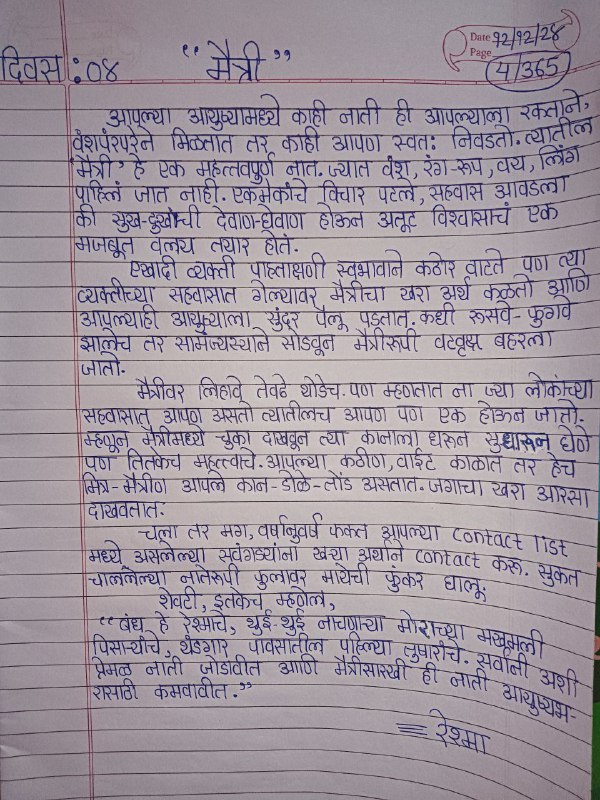 Date १२/१२/२४
Page ४/365
दिवस : ०४ “मैत्री”
आपल्या आयुष्यामध्ये काही नाती ही आपल्याला रक्ताने,
वंशपरंपरेने मिळतात तर काही आपण स्वतः निवडतो. त्यातील
'मैत्री' हे एक महत्त्वपूर्ण नातं. ज्यात वंश, रंग-रूप, वय, लिंग
पाहिलं जात नाही. एकमेकांचे विचार पटले, सहवास आवडला
की सुख-दुःखांची देवाण-घेवाण होऊन अतूट विश्वासाचं एक
मजबूत वलय तयार होतं.
एखादी व्यक्ती पाहताक्षणी स्वभावाने कठोर वाटते पण त्या
व्यक्तीच्या सहवासात गेल्यावर मैत्रीचा खरा अर्थ कळतो आणि
आपल्याही आयुष्याला सुंदर पैलू पडतात. कधी रूसवे-फुगवे
झालेच तर सामंज्यस्याने सोडवून मैत्रीरूपी वटवृक्ष बहरला
जातो.
मैत्रीवर लिहावे तेवढे थोडेच. पण म्हणतात ना ज्या लोकांच्या
सहवासात आपण असतो त्यातीलच आपण पण एक होऊन जातो.
म्हणून मैत्रीमध्ये चुका दाखवून त्या कानाला धरून सुधारून घेणे
पण तितकेच महत्त्वाचे. आपल्या कठीण, वाईट काळात तर हेच
मित्र-मैत्रीण आपले कान-डोळे-तोंड असतात. जगाचा खरा आरसा
दाखवतात.
चला तर मग, वर्षानुवर्षे फक्त आपल्या contact list
मध्ये असलेल्या सवंगड्यांना खऱ्या अर्थाने contact करू. सुकत
चाललेल्या नातेरूपी फुलांवर मायेची फुंकर घालू.
शेवटी, इतकेच म्हणेल,
“बंध हे रेशमाचे, थुई-थुई नाचणाऱ्या मोराच्या मखमली
पिसाऱ्यांचे, थंडगार पावसातील पहिल्या तुषारांचे. सर्वांनी अशी
प्रेमळ नाती जोडावीत आणि मैत्रीसारखी ही नाती आयुष्यभ-
रासाठी कमवावीत.”
रेश्मा